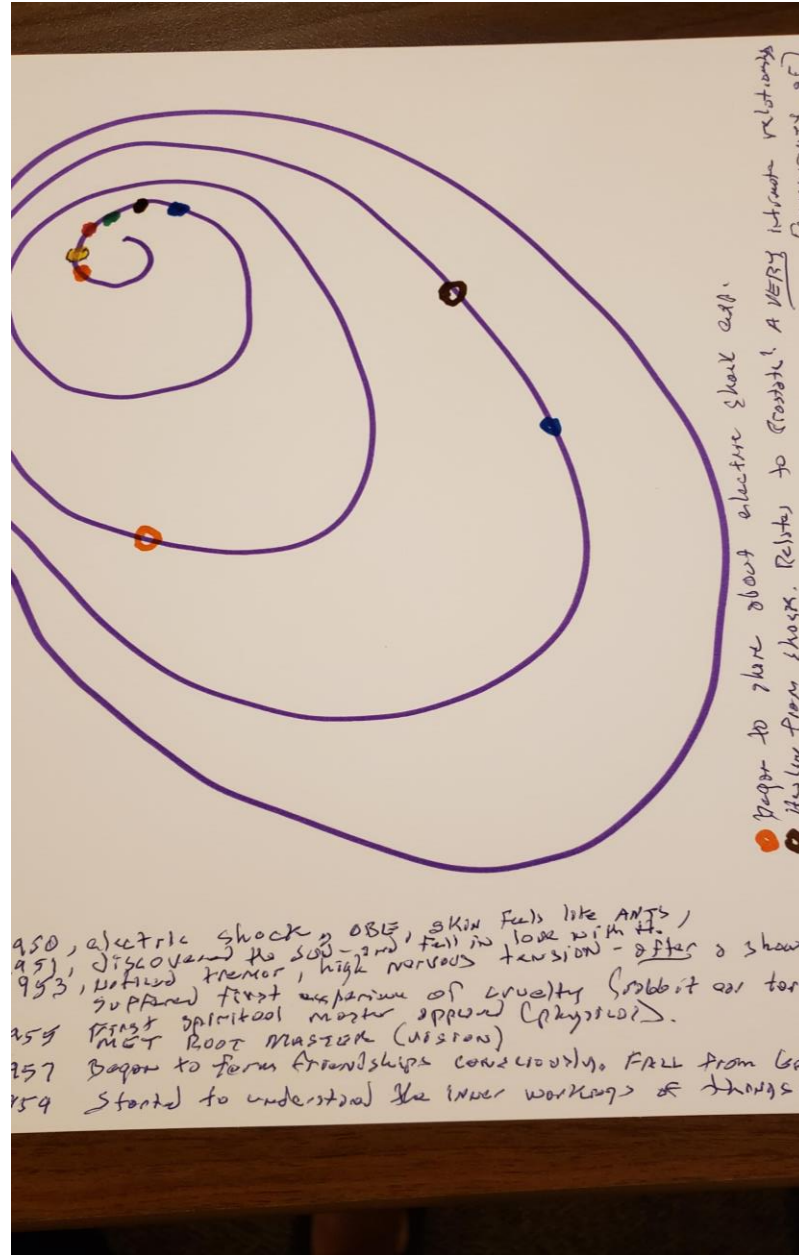 950, electric shock, OBE, skin feels like ANTS,
951, discovered the sun - and fell in love with it.
1953, noticed tremor, high nervous tension - after a show
suffered first experience of cruelty (rabbit ear tor
955 First spiritual master appeared (physical).
MET ROOT MASTER (VISION)
957 Began to form friendships consciously. FALL from
959 Started to understand the inner workings of things
Began to share about electric shock exp.
Healing from shock. Relates to Prostate? A VERY intimate relationship